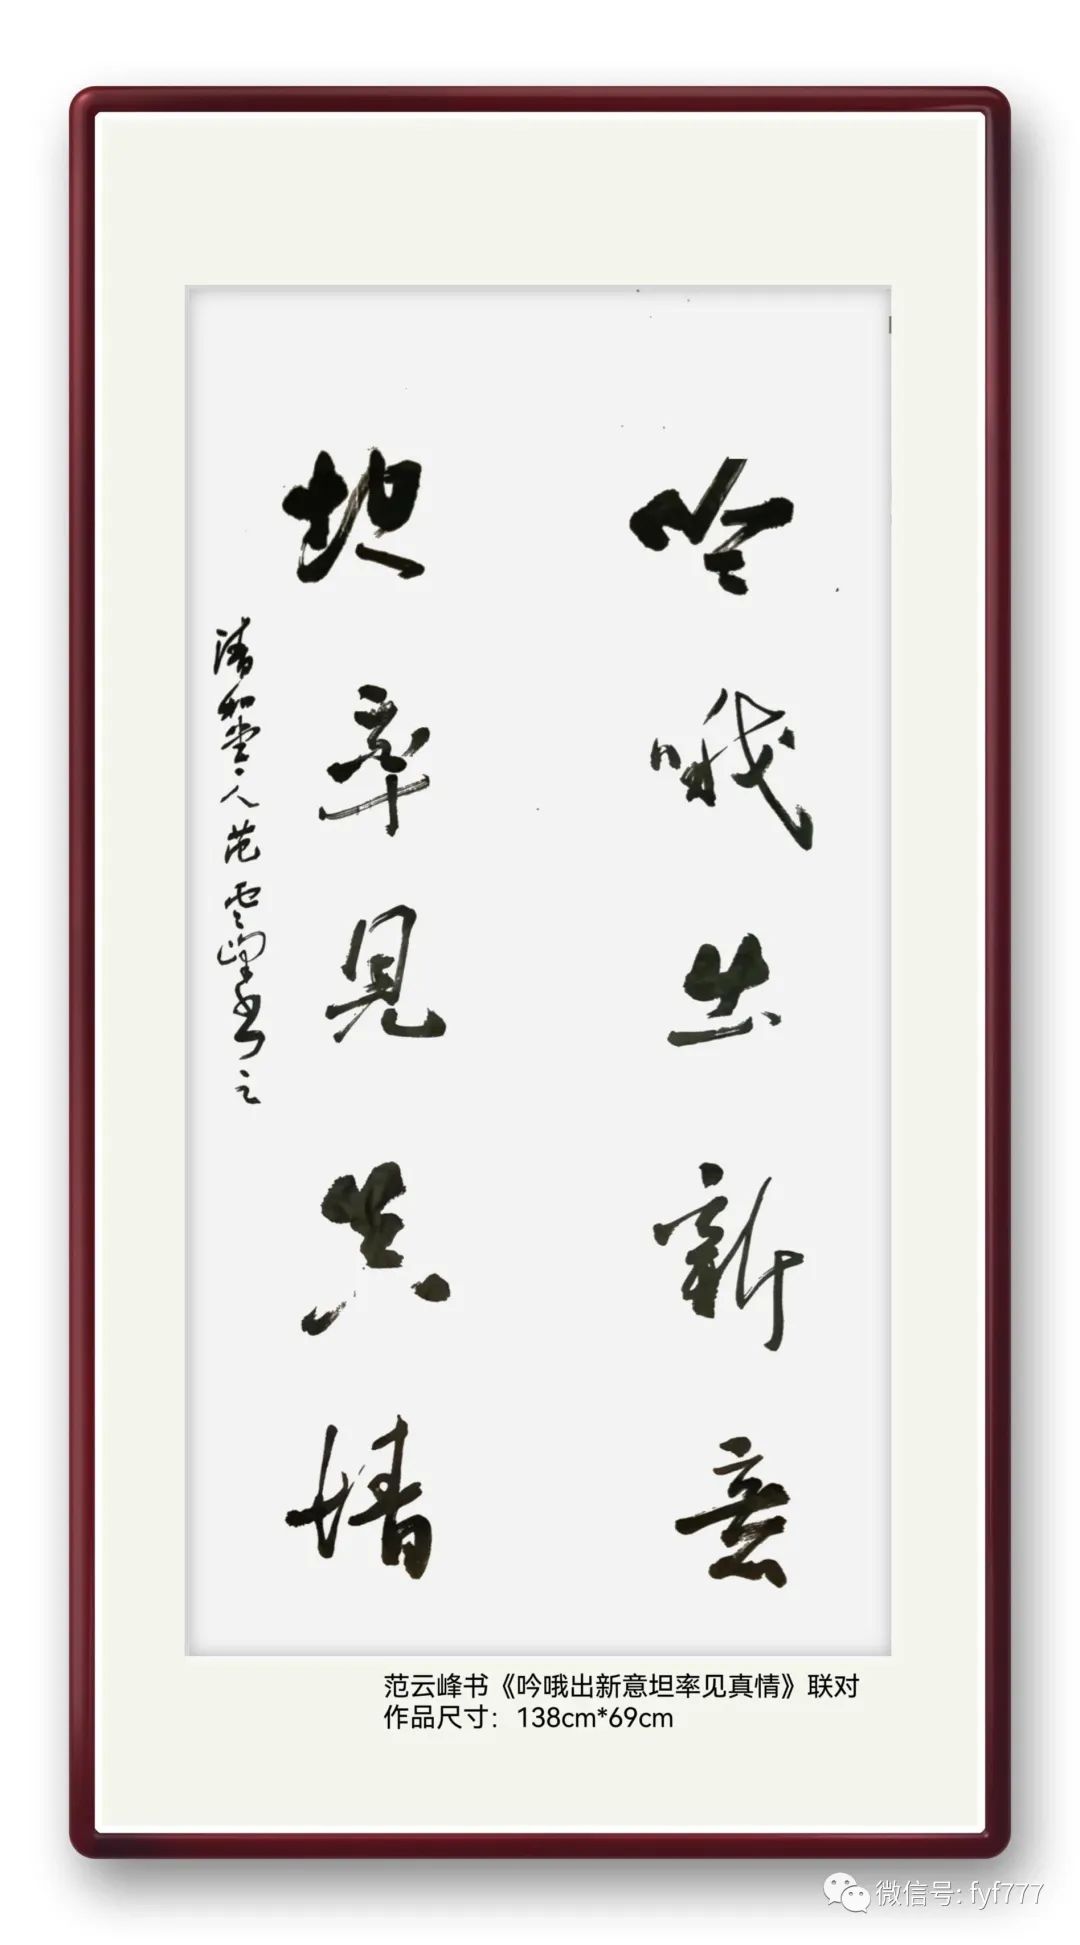 吟哦出新意
坦率见真情
清和堂人范云峰书之
范云峰书《吟哦出新意坦率见真情》联对
作品尺寸：138cm*69cm
微信号: fyf777